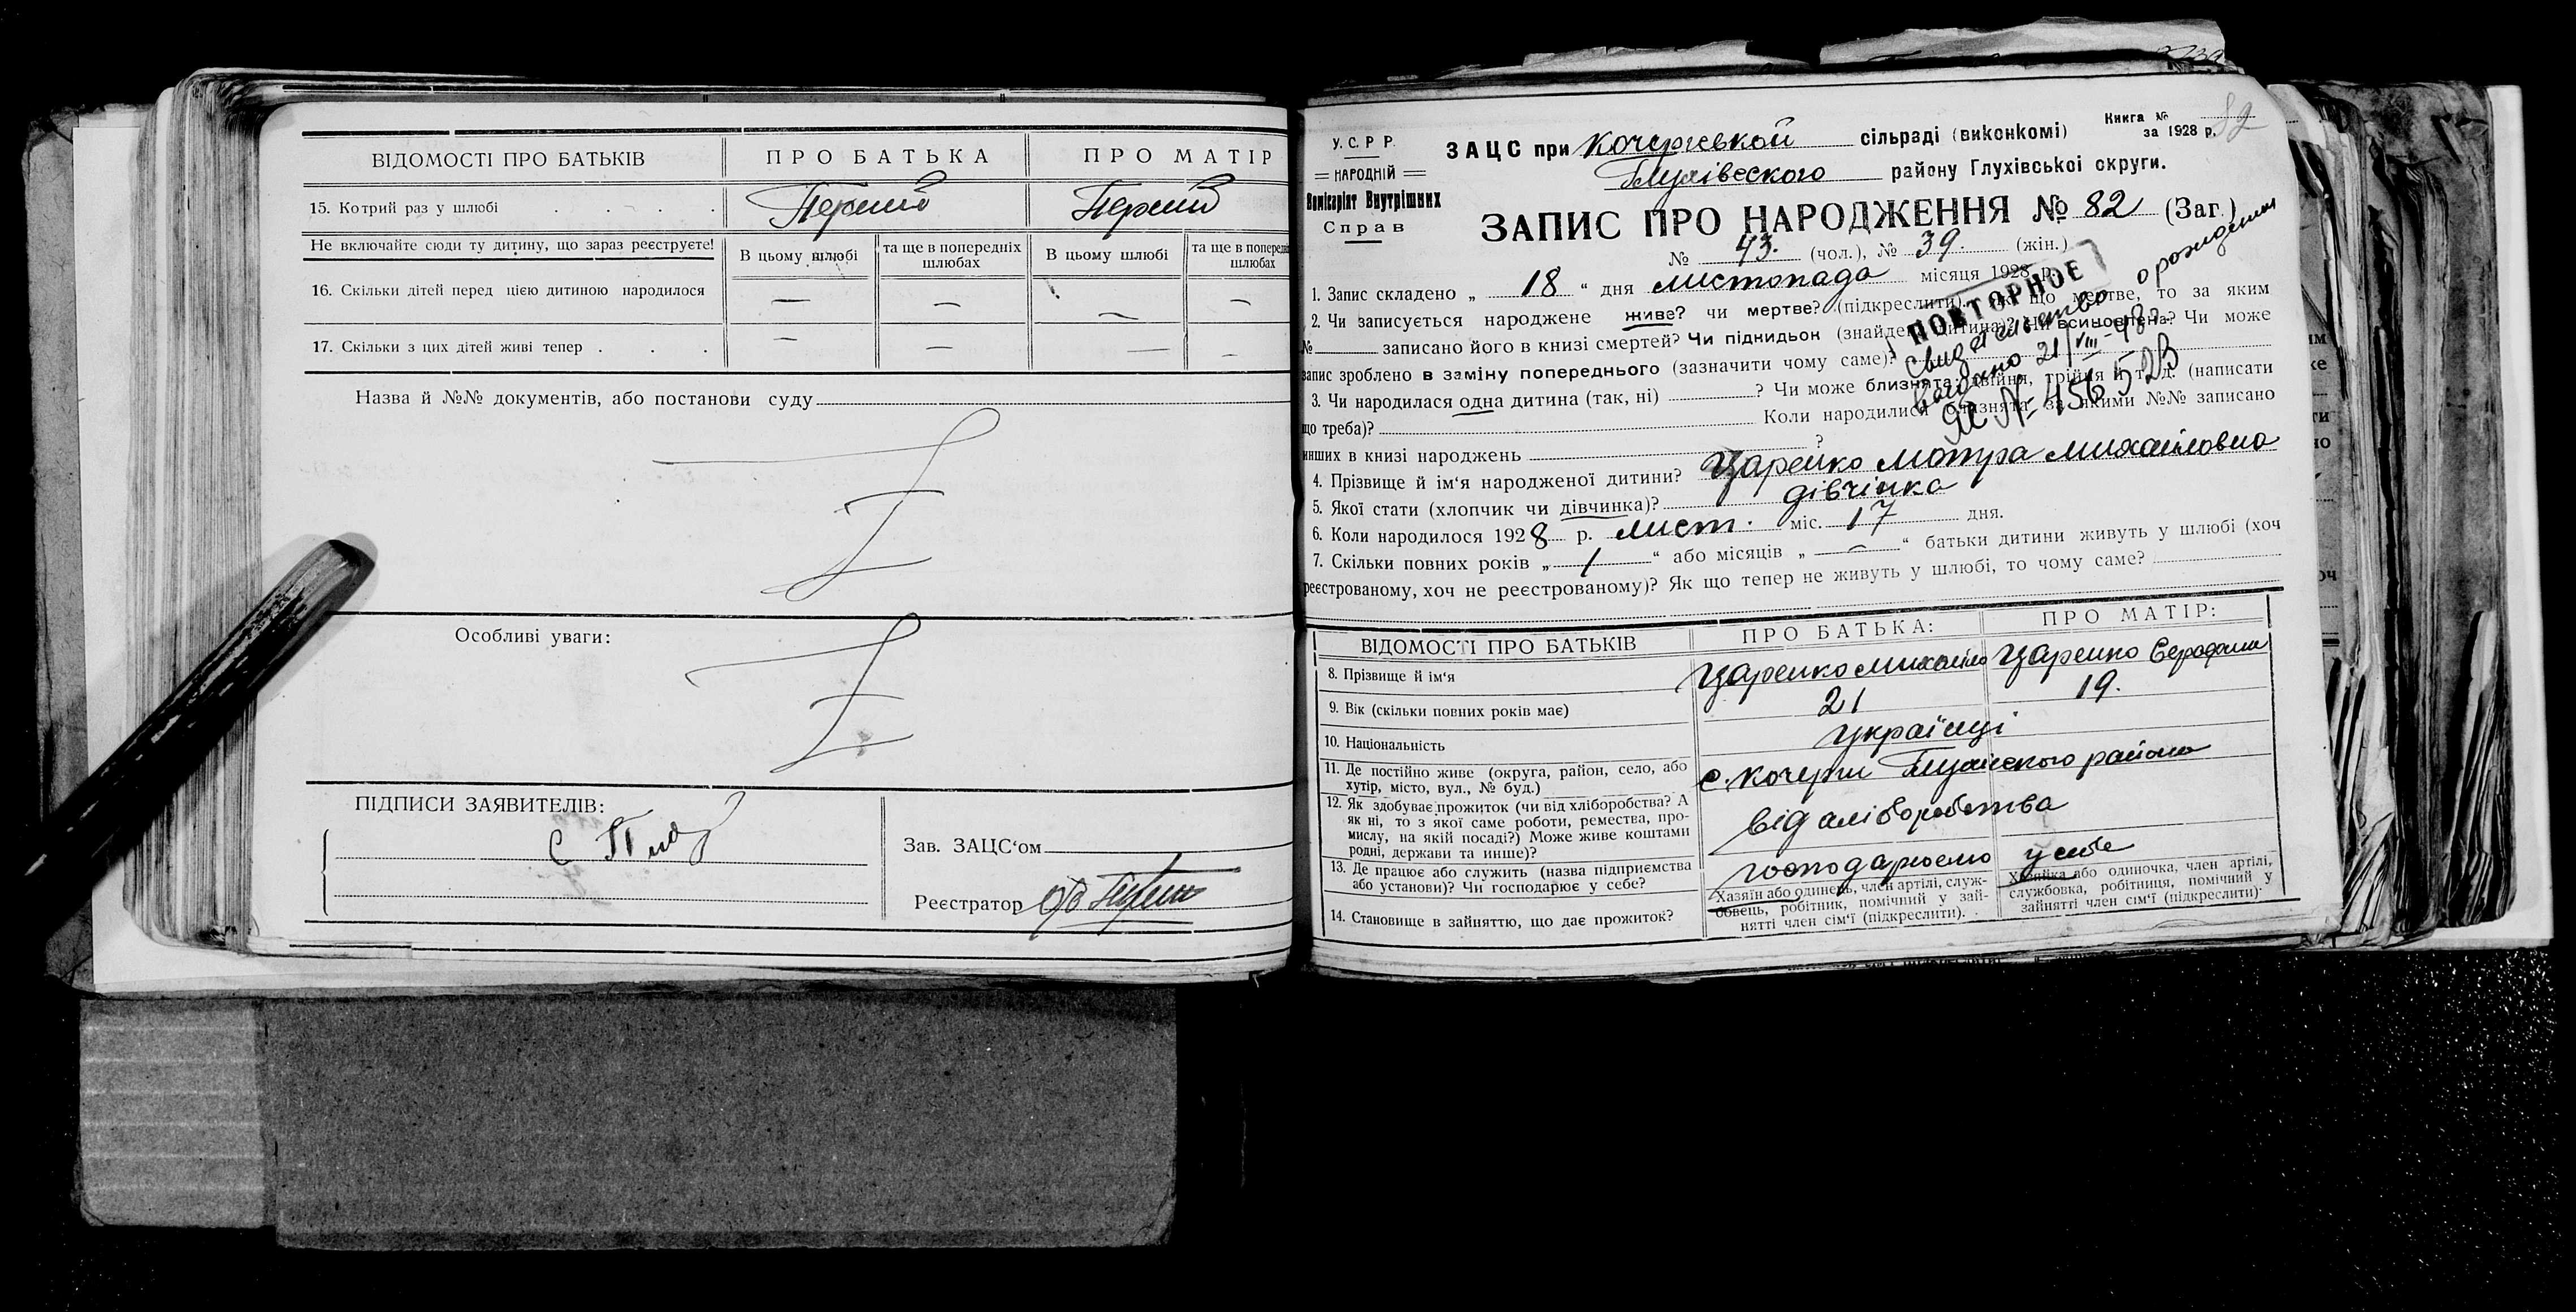 ВІДОМОСТІ ПРО БАТЬКІВ
ПРО БАТЬКА
ПРО МАТІР
15. Котрий раз у шлюбі . . . .
Перший
Перший
Не включайте сюди ту дитину, що зараз реєструєте!
В цьому шлюбі
та ще в попередніх шлюбах
В цьому шлюбі
та ще в попередніх
шлюбах
16. Скільки дітей перед цією дитиною народилося
— — — —
17. Скільки з цих дітей живі тепер . . .
— — — —
Назва й №№ документів, або постанови суду
Z
Особливі уваги:
Z
ПІДПИСИ ЗАЯВИТЕЛІВ:
Зав. ЗАЦС'ом
Реєстратор
Книга №
за 1928 р.
82
У.С.Р.Р.
НАРОДНІЙ
Комісаріят Внутрішних
Справ
ЗАЦС при Кочергевской сільраді (виконкомі)
Глухівского району Глухівської округи.
ЗАПИС ПРО НАРОДЖЕННЯ № 82 (Заг.)
№ 43. (чол.), № 39. (жін.)
1. Запис складено „ 18 “ дня листопада місяця 1928 р.
ПОВТОРНОЕ
свидетельство о рождении
выдано 21/VIII-48г.
ЯС № 456523
2. Чи записується народжене живе? чи мертве? (підкреслити). Як що мертве, то за яким
№ записано його в книзі смертей? Чи підкидьок (знайдена дитина)? Чи всиновлена? Чи може
запис зроблено в заміну попереднього (зазначити чому саме)?
3. Чи народилася одна дитина (так, ні) ? Чи може близнята: двійня, трійня й т. д. (написати
що треба)? Коли народилися близнята за якими №№ записано
инших в книзі народжень ?
4. Прізвище й ім'я народженої дитини? Царенко Мотра Михайловна
5. Якої стати (хлопчик чи дівчинка)? дівчінка
6. Коли народилося 1928 р. лист. міс. 17 дня.
7. Скільки повних років „ 1 “ або місяців „ — “ батьки дитини живуть у шлюбі (хоч
реєстрованому, хоч не реєстрованому)? Як що тепер не живуть у шлюбі, то чому саме?
ВІДОМОСТІ ПРО БАТЬКІВ
ПРО БАТЬКА:
ПРО МАТІР:
8. Прізвище й ім'я
Царенко Михайло
Царенко Серафима
9. Вік (скільки повних років має)
21
19.
10. Національність
українці
11. Де постійно живе (округа, район, село, або
хутір, місто, вул., № буд.)
с. Кочерги Глухівского района
12. Як здобуває прожиток (чи від хліборобства? А
як ні, то з якої саме роботи, ремества, про-
мислу, на якій посаді?) Може живе коштами
родні, держави та инше)?
від хліборобства
13. Де працює або служить (назва підприємства
або установи)? Чи господарює у себе?
господарюємо у себе
14. Становище в зайняттю, що дає прожиток?
Хазяїн або одинець, член артілі, служ-
бовець, робітник, помічний у зай-
нятті член сім'ї (підкреслити).
Хазяйка або одиночка, член артілі,
службовка, робітниця, помічний у
зайнятті член сім'ї (підкреслити).